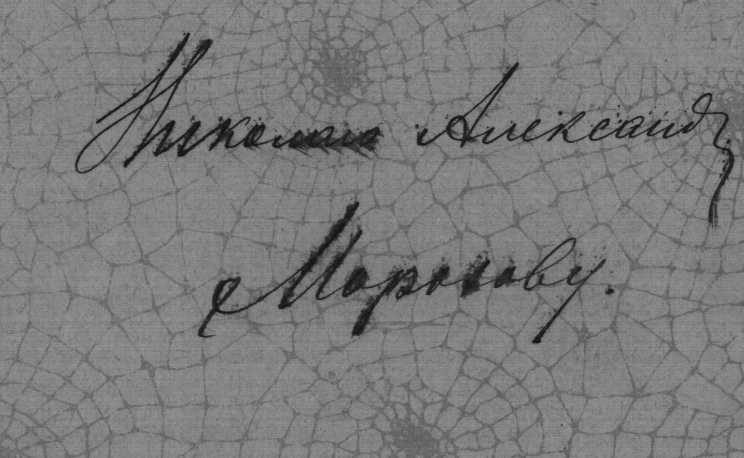 Николаю Александр
Морозову.